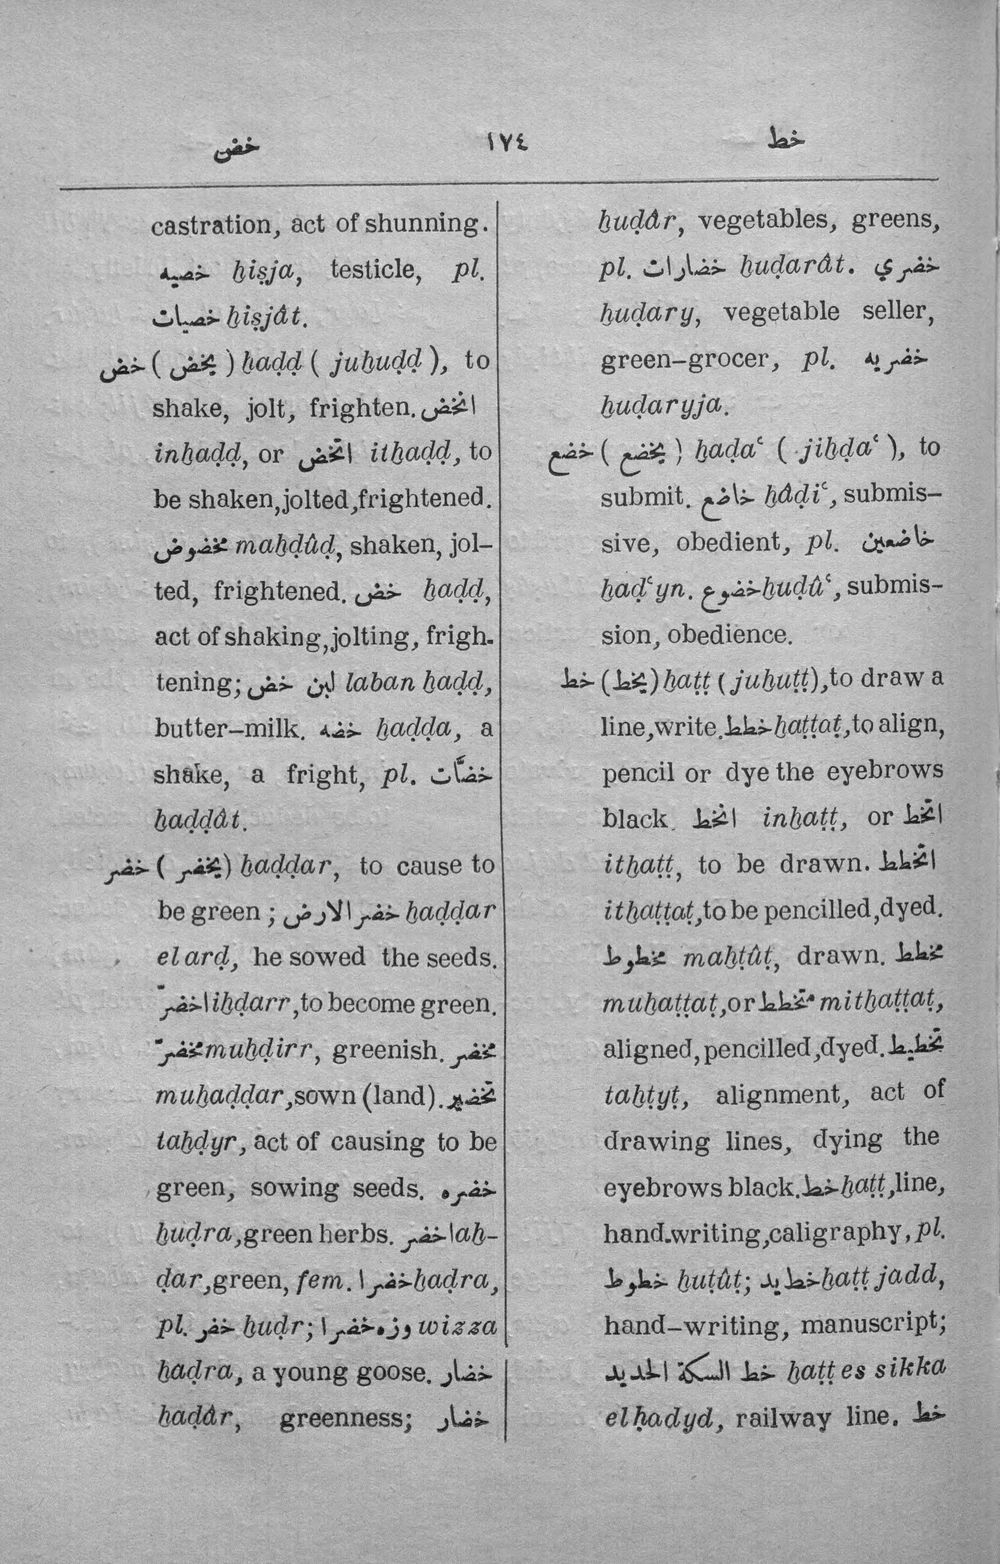 خضن ١٧٤ خط
castration, act of shunning.
خصيه ḫiṣja, testicle, pl.
خصيات ḫiṣjât.
خض ( يخض ) ḫaḍḍ ( juḫuḍḍ ), to
shake, jolt, frighten. انخض
inḫaḍḍ, or اتخض itḫaḍḍ, to
be shaken, jolted, frightened.
مخضوض maḫḍûḍ, shaken, jol-
ted, frightened. خض ḫaḍḍ,
act of shaking, jolting, frigh-
tening; لبن خض laban ḫaḍḍ,
butter-milk. خضه ḫaḍḍa, a
shake, a fright, pl. خضَّات
ḫaḍḍât.
خضر ( يخضر ) ḫaḍḍar, to cause to
be green ; خضر الارض ḫaḍḍar
el arḍ, he sowed the seeds.
اخضرّ iḫḍarr, to become green.
مخضرّ muḫḍirr, greenish. مخضر
muḫaḍḍar, sown (land). تخضير
taḫḍyr, act of causing to be
green, sowing seeds. خضره
ḫuḍra, green herbs. اخضر aḫ-
ḍar, green, fem. خضرا ḫaḍra,
pl. خضر ḫuḍr; وزه خضرا wizza
ḫaḍra, a young goose. خضار
ḫaḍâr, greenness; خضار
ḫuḍâr, vegetables, greens,
pl. خضارات ḫuḍarât. خضري
ḫuḍary, vegetable seller,
green-grocer, pl. خضريه
ḫuḍaryja.
خضع ( يخضع ) ḫaḍaʿ ( jiḫḍaʿ ), to
submit. خاضع ḫâḍiʿ, submis-
sive, obedient, pl. خاضعين
ḫaḍʿyn. خضوع ḫuḍûʿ, submis-
sion, obedience.
خط (يخط) ḫaṭṭ (juḫuṭṭ), to draw a
line, write. خطط ḫaṭṭaṭ, to align,
pencil or dye the eyebrows
black. انخط inḫaṭṭ, or اتخط
itḫaṭṭ, to be drawn. اتخطط
itḫaṭṭaṭ, to be pencilled, dyed.
مخطوط maḫṭûṭ, drawn. مخطط
muḫaṭṭaṭ, or متخطط mitḫaṭṭaṭ,
aligned, pencilled, dyed. تخطيط
taḫṭyṭ, alignment, act of
drawing lines, dying the
eyebrows black. خط ḫaṭṭ, line,
hand-writing, caligraphy, pl.
خطوط ḫuṭûṭ; خط يد ḫaṭṭ jadd,
hand-writing, manuscript;
خط السكة الحديد ḫaṭṭ es sikka
elḥadyd, railway line. خط